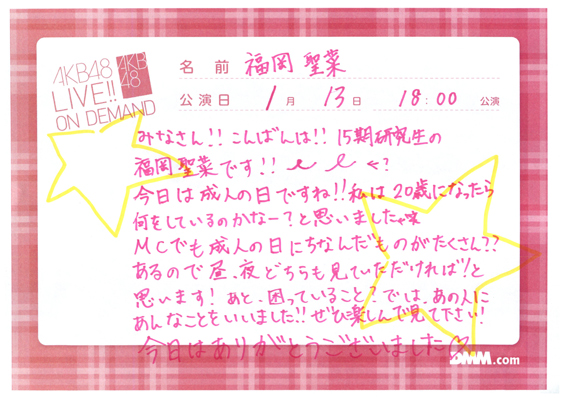 AKB48
LIVE!!
ON DEMAND
AKB
48
名 前 福岡 聖菜
公演日 1 月 13 日 18:00 公演
みなさん!!こんばんは!!15期研究生の
福岡聖菜です!!
今日は成人の日ですね!!私は20歳になったら
何をしているのかなー?と思いました
MCでも成人の日にちなんだものがたくさん??
あるので昼、夜どちらも見ていただければ!!と
思います!あと、困っていること?では、あの人に
あんなことをいいました!!ぜひ楽しんで見て下さい!
今日はありがとうございました♡
DMM.com